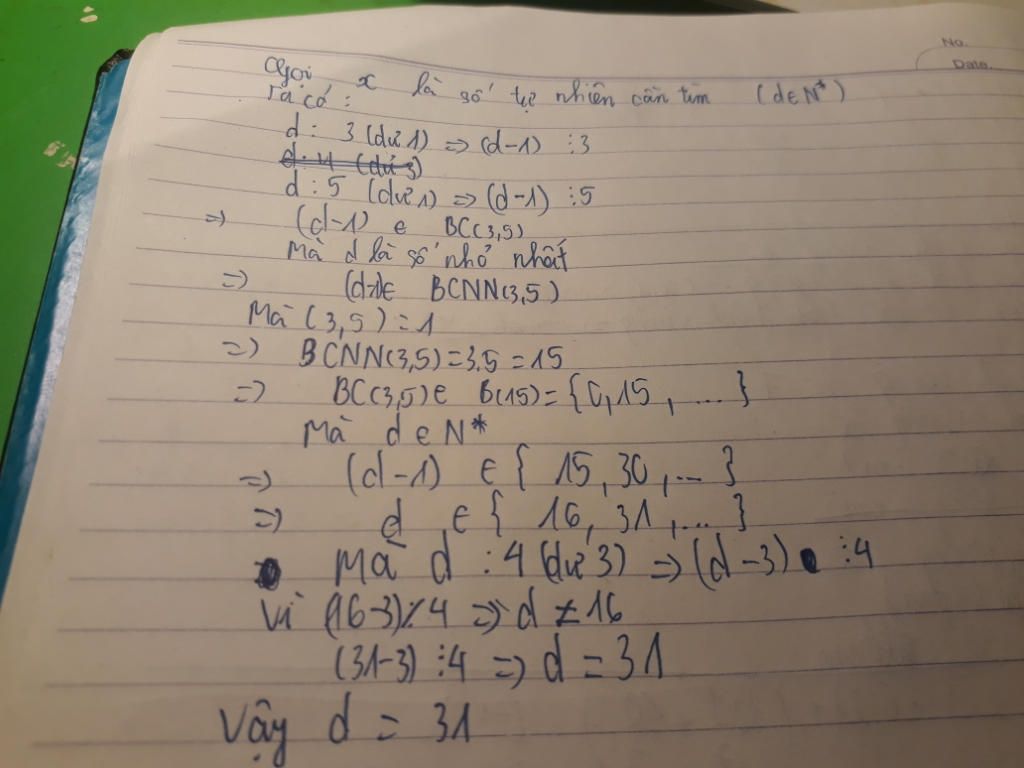 No.
Date.
Gọi x là số tự nhiên cần tìm (d∈N*)
Ta có:
d : 3 (dư 1) => (d-1) ⋮3
d : 4 (dư 3)
d : 5 (dư 1) => (d-1) ⋮5
=> (d-1) ∈ BC(3,5)
Mà d là số nhỏ nhất
=> (d-1)∈ BCNN(3,5)
Mà (3,5) = 1
=> BCNN(3,5)=3.5 = 15
=> BC(3,5)∈ B(15)= {0,15, ...}
Mà d∈N*
=> (d-1) ∈ { 15, 30, ... }
=> d ∈ { 16, 31, ... }
Mà d : 4 (dư 3) => (d-3) ⋮4
Vì (16-3)⋮̸4 => d ≠ 16
(31-3) ⋮4 => d = 31
Vậy d = 31